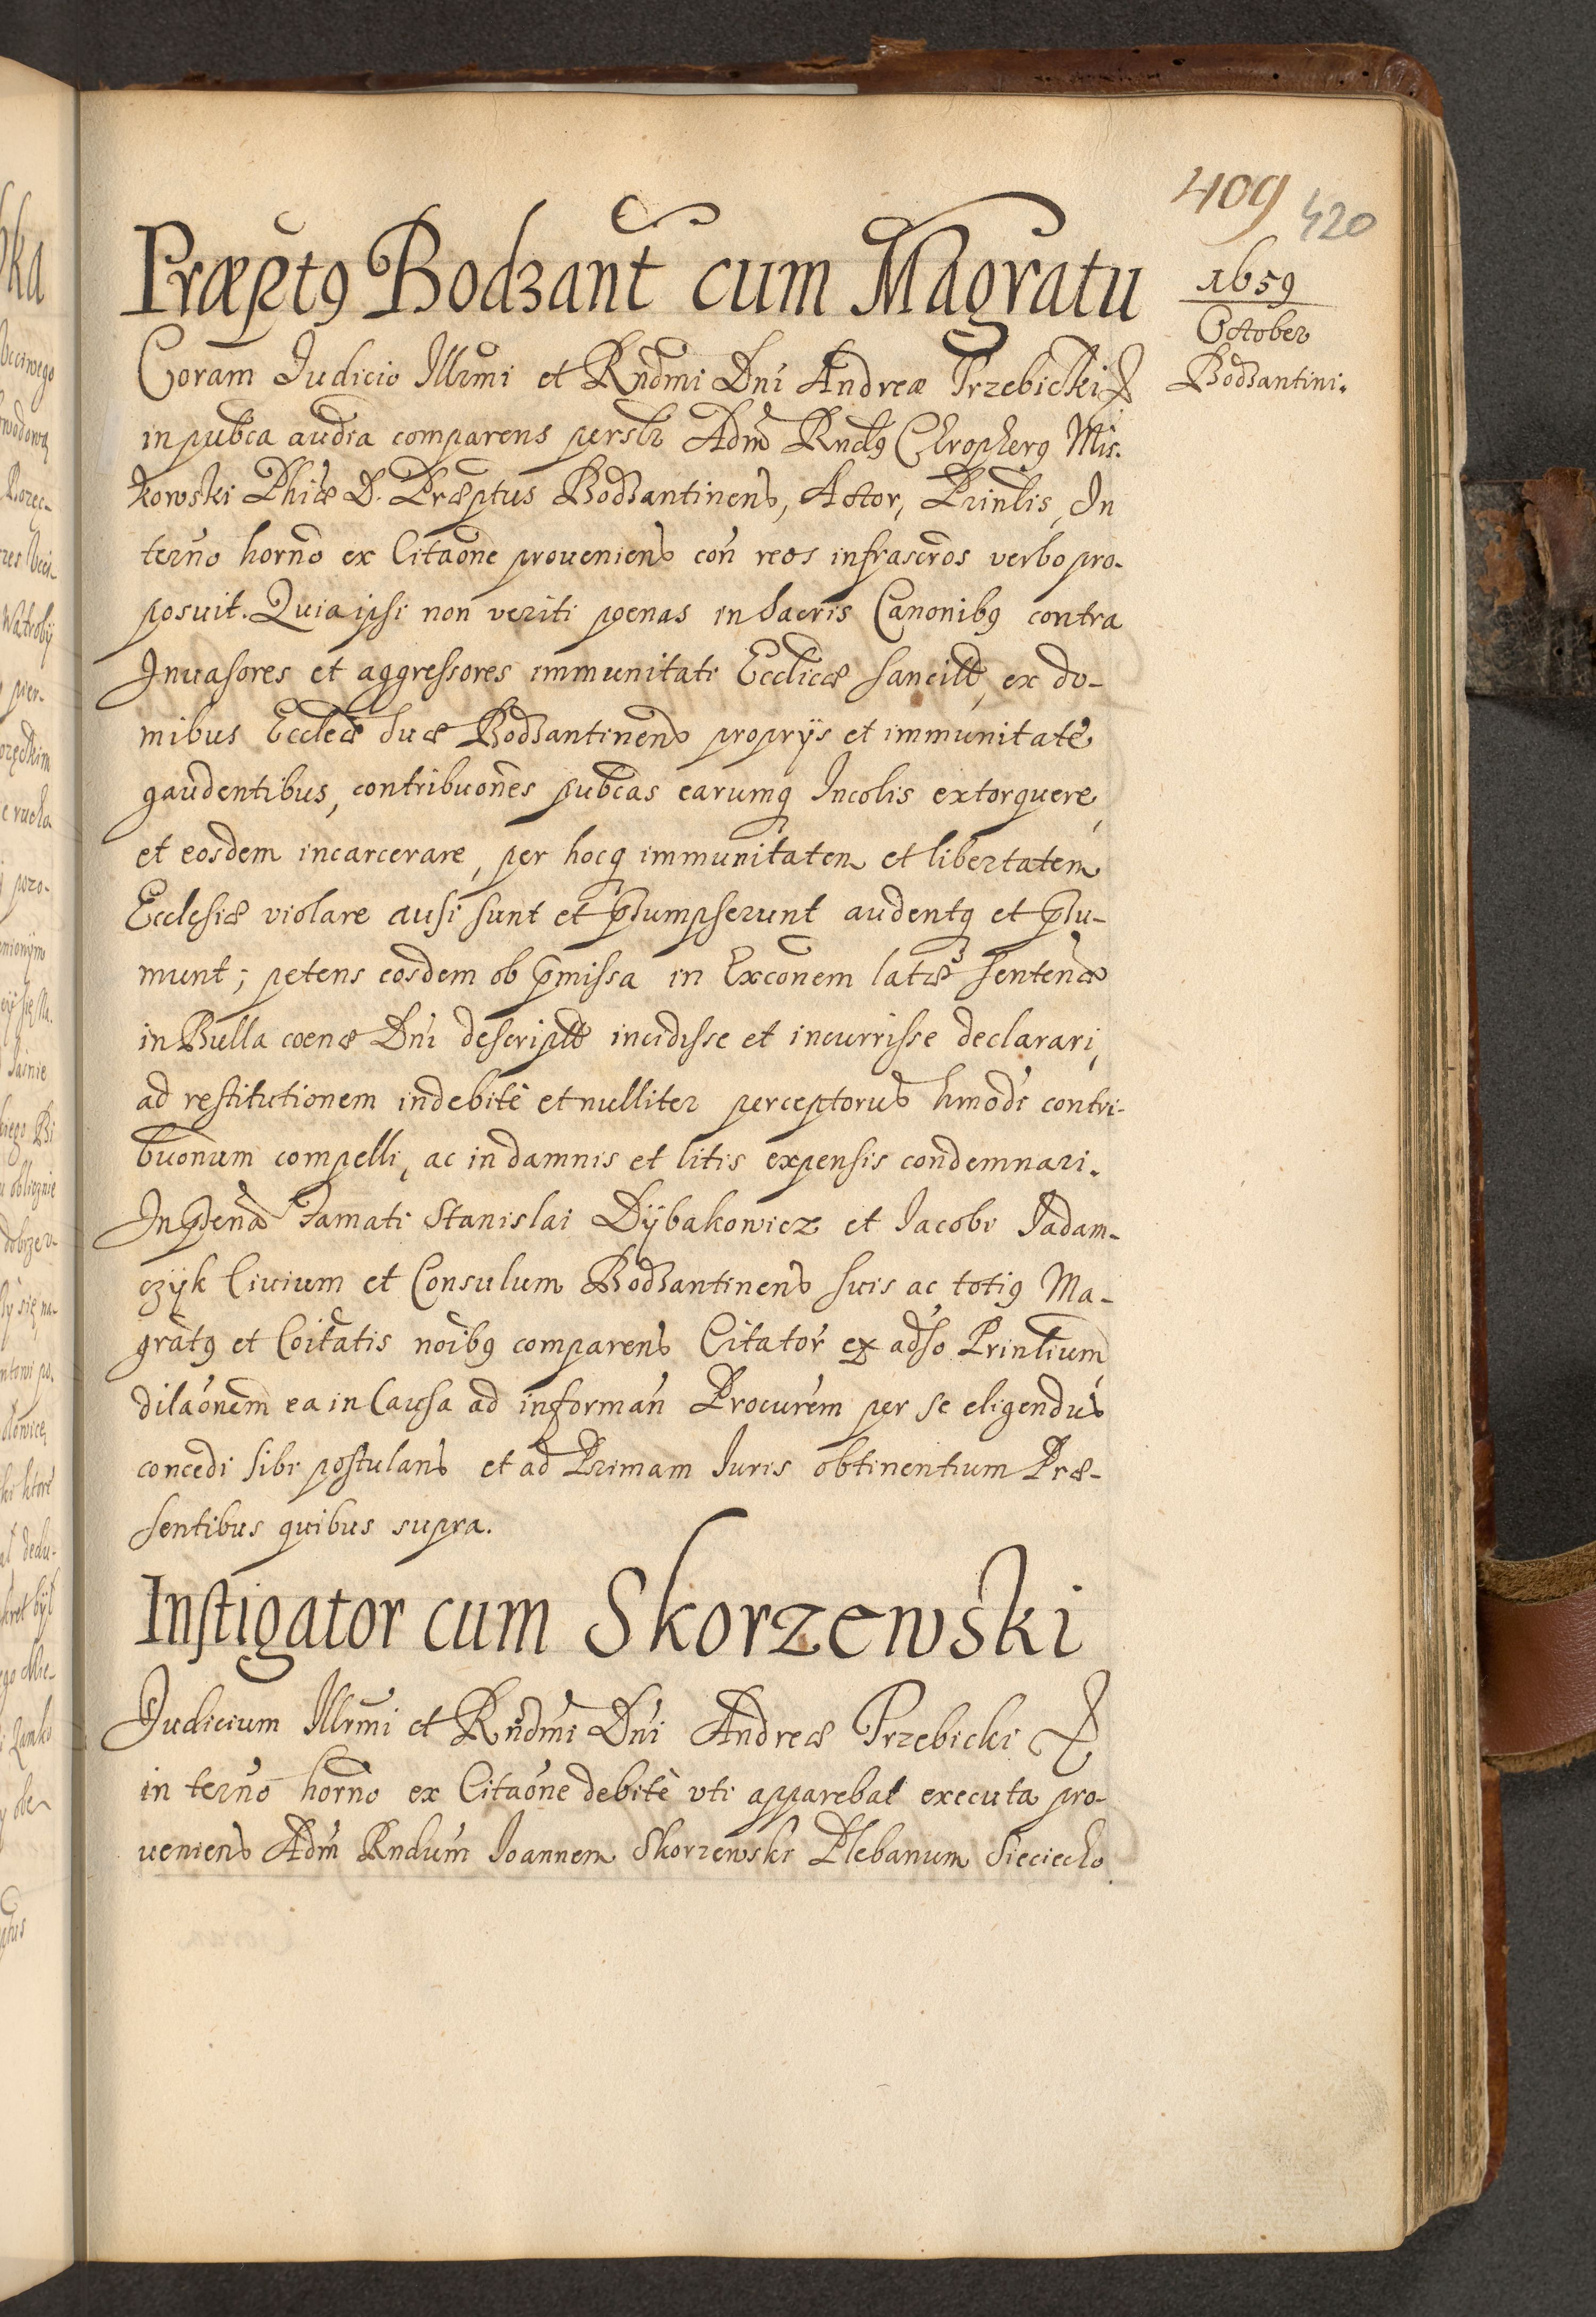 409
420
1659
October
Bodzantini.
Præptꝰ Bodzant cum Magratu
Coram Judicio Illrmi et Rndmi Dni Andreæ Trzebicki
in pubca audia comparens persлr Adm Rndꝰ Chropherꝰ Mis-
kowski Phiæ D. Præptus Bodzantinens, Actor, Prinlis, In
terno horno ex Citaone proueniens con reos infrascros verbo pro-
posuit. Quia ipsi non veriti poenas in Sacris Canonibꝰ contra
Inuasores et aggressores immunitati Eccliæ sancitt, ex do-
mibus Eccleæ suæ Bodzantinens proprijs et immunitate
gaudentibus, contribuones pubcas earumq Incolis extorquere,
et eosdem incarcerare, per hocq immunitatem et libertatem
Ecclesiæ violare ausi sunt et p̄sumpserunt audentq et p̄su-
munt; petens eosdem ob p̄missa in Exconem latæ sentenæ
in Bulla coenæ Dni descriptt incidisse et incurrisse declarari,
ad restitutionem indebitè et nulliter perceptorus hmodi contri-
buonum compelli, ac in damnis et litis expensis condemnari.
In p̄dena Famati Stanislai Dÿbakowicz et Jacobi Jadam-
czÿk Ciuium et Consulum Bodzantinens suis ac totiꝰ Ma-
gratꝰ et Coitatis noibꝰ comparens Citator ex adso Prinlium
dilaonem ea in Causa ad informan Procurem per se eligendus
concedi sibi postulans et ad Primam Juris obtinentium Præ-
sentibus quibus supra.
Instigator cum Skorzewski
Judicium Illrmi et Rndmi Dni Andreæ Trzebicki
in terno horno ex Citaone debitè vti apparebat executa pro-
ueniens Adm Rndum Joannem Skorzewski Plebanum Sieciecho